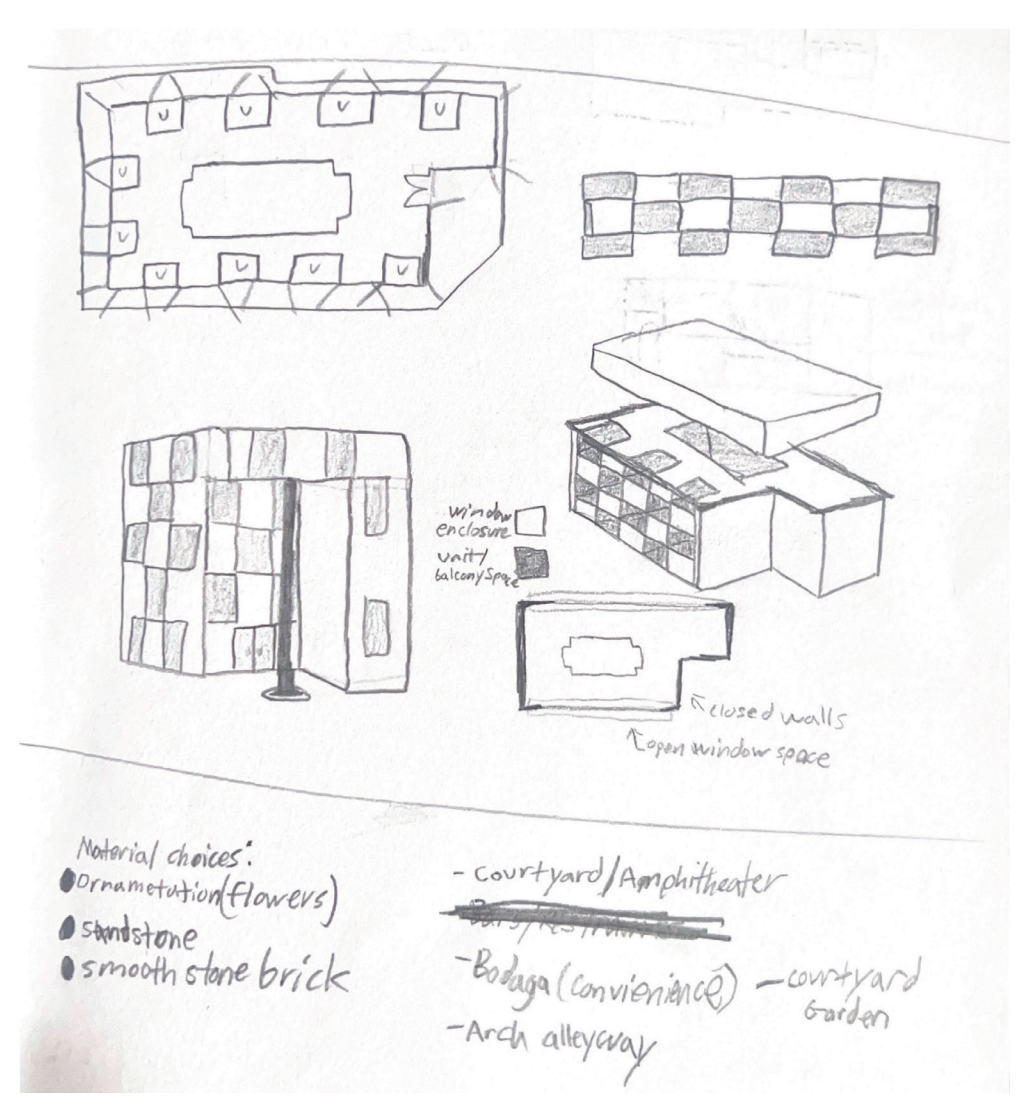 U
U
U
U
U
U
U
U
U
U
window
enclosure
unit/
balcony space
closed walls
open window space
Material choices:
Ornametation(flowers)
sandstone
smooth stone brick
- Courtyard/Amphitheater
- Bodaga (convienience)
- courtyard
Garden
- Arch alleyway